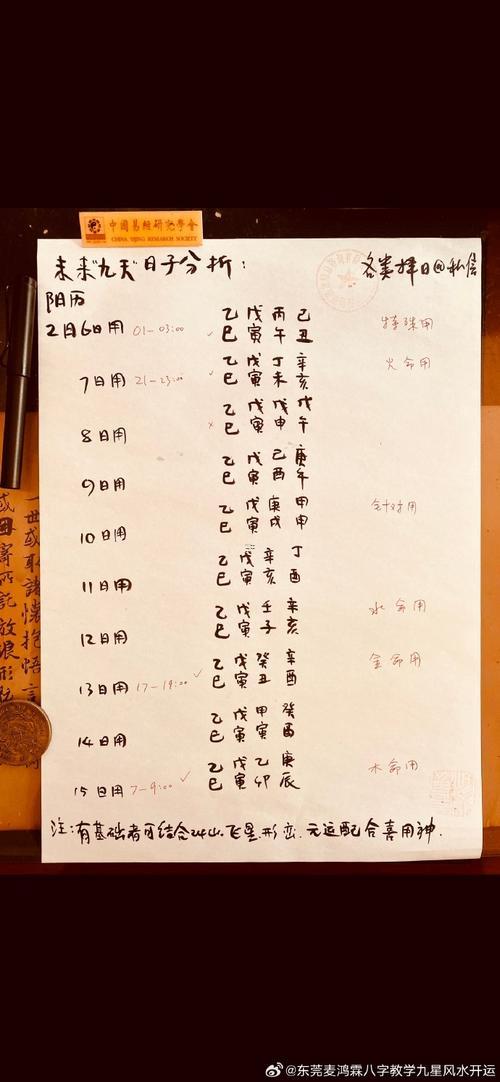 中国易经研究学会
CHINA YIJING RESEARCH SOCIETY
未来"九天"日子分析：
各类择日@私信
阳历
2月6日用 01-03:00 ✓ 乙戊丙己 特殊用
巳寅午丑
7日用 21-23:00 ✓ 乙戊丁辛 火命用
巳寅未亥
8日用 × 乙戊戊戊
巳寅申午
9日用 乙戊己庚
巳寅酉午
10日用 乙戊庚甲 针对用
巳寅戌申
11日用 乙戊辛丁
巳寅亥酉
12日用 乙戊壬辛 水命用
巳寅子亥
13日用 17-19:00 ✓ 乙戊癸辛 金命用
巳寅丑酉
14日用 乙戊甲癸
巳寅寅酉
15日用 7-9:00 ✓ 乙戊乙庚 木命用
巳寅卯辰
注：有基础者可结合24山.飞星.形峦.元运配合喜用神.
一世或取诸怀抱悟言
或因寄所托放浪形
@东莞麦鸿霖八字教学九星风水开运